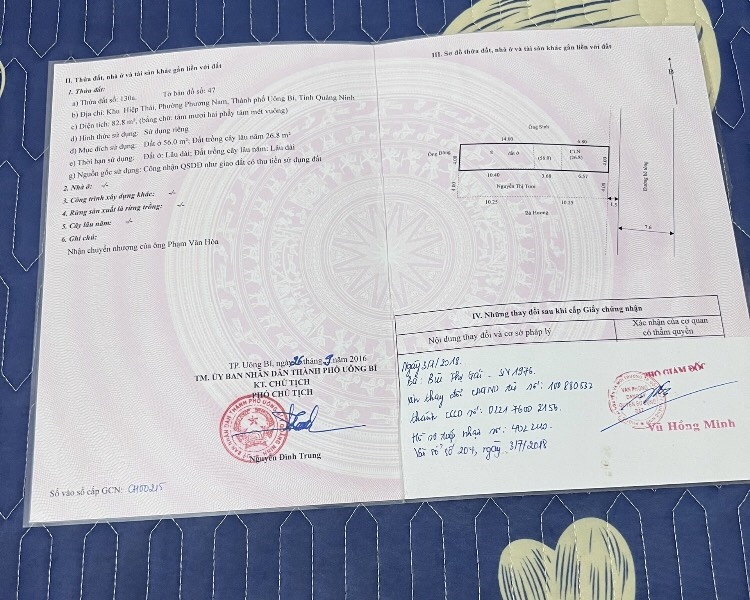 II. Thửa đất, nhà ở và tài sản khác gắn liền với đất
1. Thửa đất:
a) Thửa đất số: 130a, Tờ bản đồ số: 47
b) Địa chỉ: Khu Hiệp Thái, Phường Phương Nam, Thành phố Uông Bí, Tỉnh Quảng Ninh
c) Diện tích: 82.8 m², (bằng chữ: tám mươi hai phẩy tám mét vuông)
d) Hình thức sử dụng: Sử dụng riêng
đ) Mục đích sử dụng: Đất ở 56.0 m²; Đất trồng cây lâu năm 26.8 m²
e) Thời hạn sử dụng: Đất ở: Lâu dài; Đất trồng cây lâu năm: Lâu dài
g) Nguồn gốc sử dụng: Công nhận QSDĐ như giao đất có thu tiền sử dụng đất
2. Nhà ở: -/-
3. Công trình xây dựng khác: -/-
4. Rừng sản xuất là rừng trồng: -/-
5. Cây lâu năm: -/-
6. Ghi chú:
Nhận chuyển nhượng của ông Phạm Văn Hòa
TP. Uông Bí, ngày 26 tháng 9 năm 2016
TM. ỦY BAN NHÂN DÂN THÀNH PHỐ UÔNG BÍ
KT. CHỦ TỊCH
PHÓ CHỦ TỊCH
Nguyễn Đình Trung
Số vào sổ cấp GCN: CH00215
III. Sơ đồ thửa đất, nhà ở và tài sản khác gắn liền với đất
B
Ông Ninh
14.00 6.80
Ông Đông 4.00 đất ở (56.0) CLN (26.8) 4.00
10.40 3.68 6.57
4.00 Nguyễn Thị Tươi 4.00
10.25 10.25
Bà Hương
1.5
7.6
Đường bê tông
IV. Những thay đổi sau khi cấp Giấy chứng nhận
Nội dung thay đổi và cơ sở pháp lý
Xác nhận của cơ quan
có thẩm quyền
Ngày 3/7/2018.
Bà: Bùi Thị - SN 1976.
thay đổi CMND từ số: 100880632
thành CCCD số: 0121 7600 2156.
Hồ sơ tiếp nhận số: 402240.
Vào sổ số 204, ngày 3/7/2018
PHÓ GIÁM ĐỐC
Vũ Hồng Minh